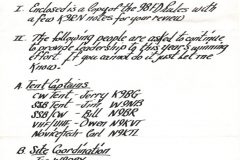 I. Enclosed is a Copy of the FD Rules with
a few K9EN notes for your review
II. The following people are asked to continue
to provide leadership to this year's winning
effort. If you cannot do it just let me
know.
A. Tent Captains
CW Tent - Jerry
SSB Tent - Jim
SSB/CW - Bill
VHF/UHF - Owen
Novice/Tech - Carl
B. Site Coordination